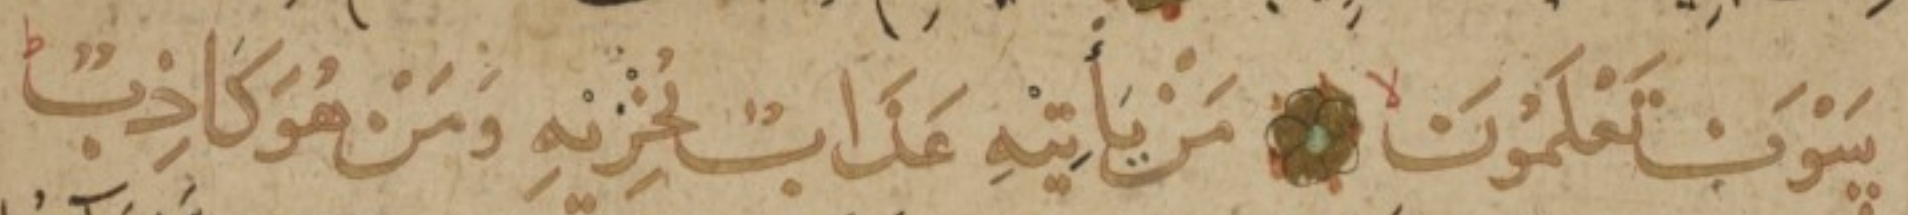 سَوْفَ تَعْلَمُونَ ۙ مَنْ يَأْتِيهِ عَذَابٌ يُخْزِيهِ وَمَنْ هُوَ كَاذِبٌ ط